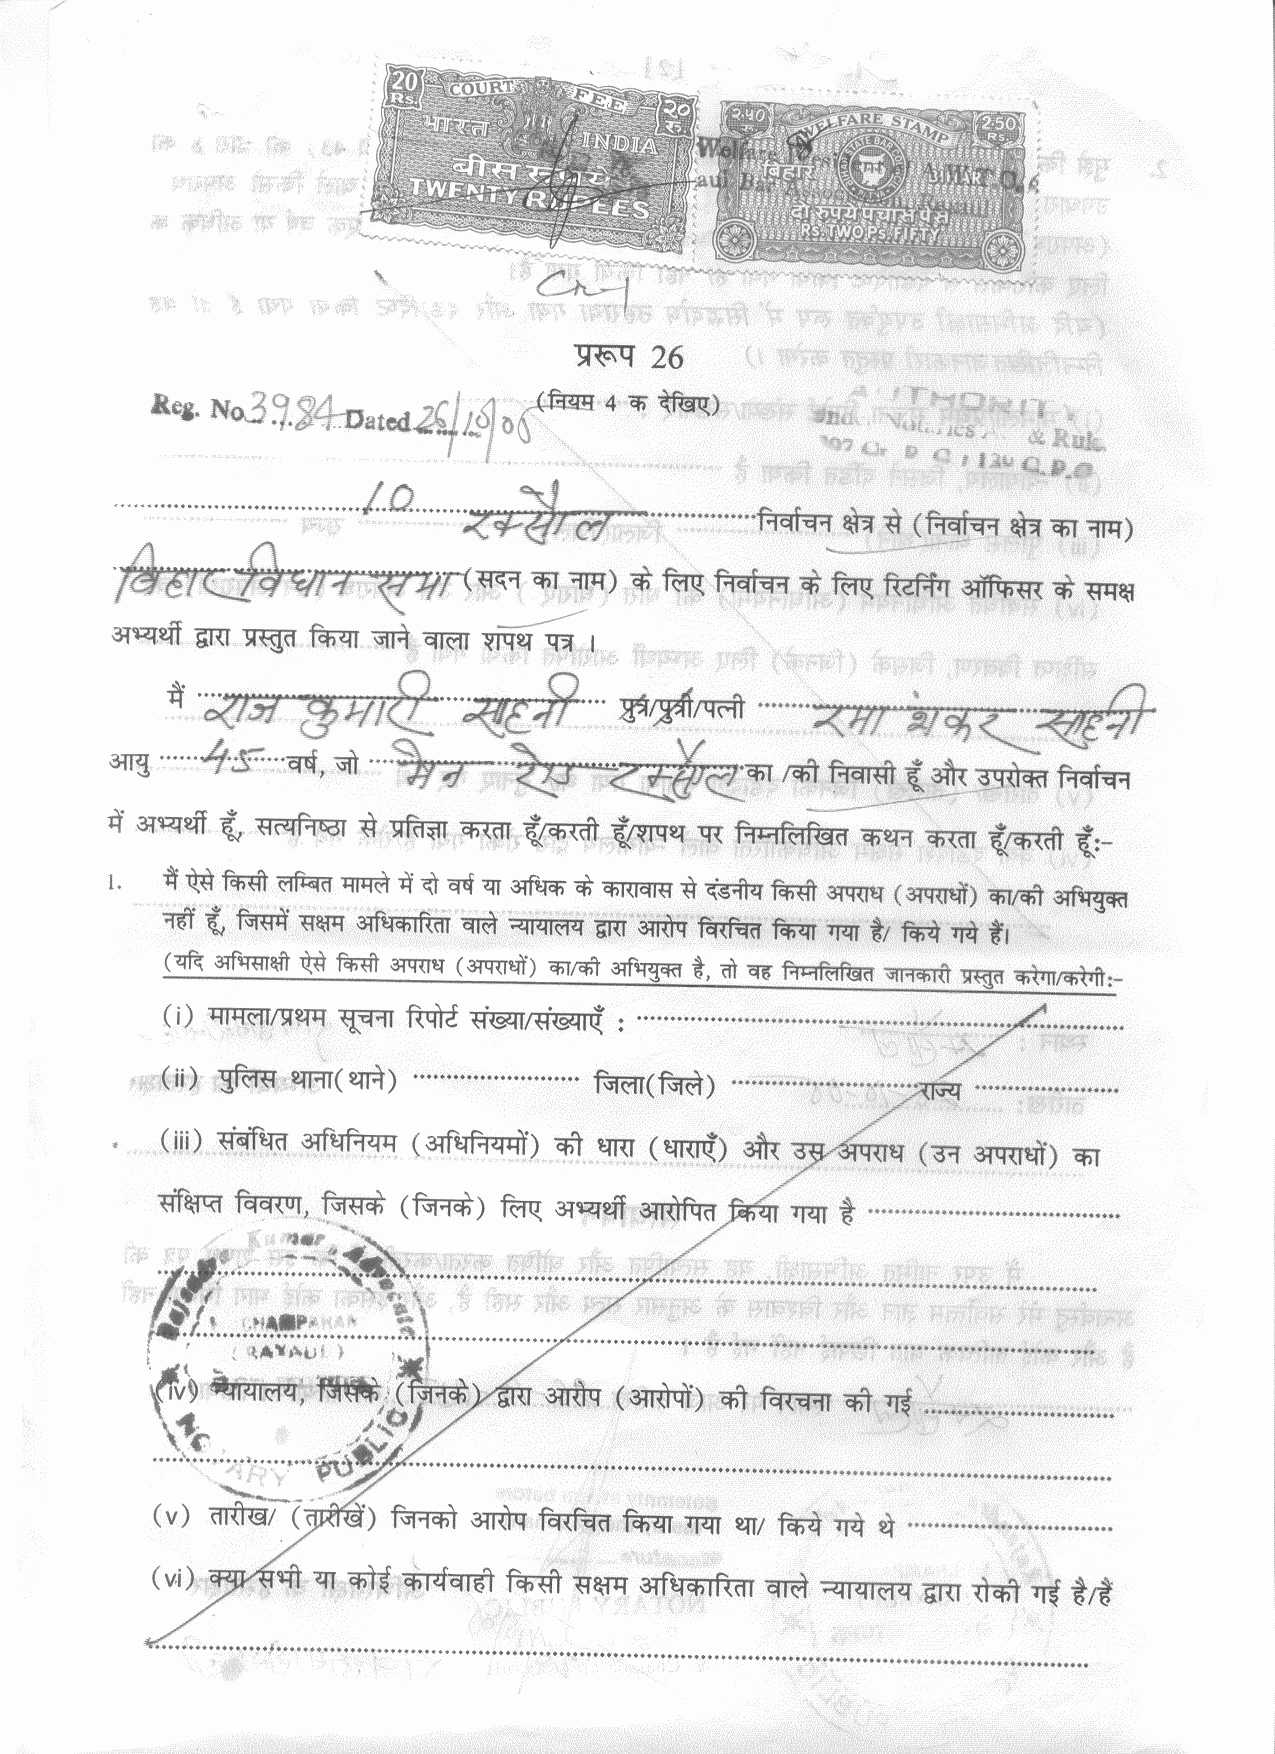 20 Rs. COURT FEE २० रु.
भारत INDIA
बीस रुपये
TWENTY RUPEES
2.50 WELFARE STAMP 2.50 Rs.
बिहार
दो रुपये पचास पैसे
RS. TWO PS. FIFTY
प्ररूप 26
(नियम 4 क देखिए)
Reg. No. 3984 Dated 26/10/05
10 रक्सौल निर्वाचन क्षेत्र से (निर्वाचन क्षेत्र का नाम)
बिहार विधान सभा (सदन का नाम) के लिए निर्वाचन के लिए रिटर्निंग ऑफिसर के समक्ष
अभ्यर्थी द्वारा प्रस्तुत किया जाने वाला शपथ पत्र ।
मैं राज कुमारी साहनी पुत्र/पुत्री/पत्नी रमा शंकर साहनी
आयु 45 वर्ष, जो मेन रोड रक्सौल का /की निवासी हूँ और उपरोक्त निर्वाचन
में अभ्यर्थी हूँ, सत्यनिष्ठा से प्रतिज्ञा करता हूँ/करती हूँ/शपथ पर निम्नलिखित कथन करता हूँ/करती हूँ:-
1. मैं ऐसे किसी लम्बित मामले में दो वर्ष या अधिक के कारावास से दंडनीय किसी अपराध (अपराधों) का/की अभियुक्त
नहीं हूँ, जिसमें सक्षम अधिकारिता वाले न्यायालय द्वारा आरोप विरचित किया गया है/ किये गये हैं।
(यदि अभिसाक्षी ऐसे किसी अपराध (अपराधों) का/की अभियुक्त है, तो वह निम्नलिखित जानकारी प्रस्तुत करेगा/करेगी:-
(i) मामला/प्रथम सूचना रिपोर्ट संख्या/संख्याएँ :
(ii) पुलिस थाना(थाने) जिला(जिले) राज्य
(iii) संबंधित अधिनियम (अधिनियमों) की धारा (धाराएँ) और उस अपराध (उन अपराधों) का
संक्षिप्त विवरण, जिसके (जिनके) लिए अभ्यर्थी आरोपित किया गया है
Kumar, Advocate
(RAXAUL)
NOTARY PUBLIC
(iv) न्यायालय, जिसके (जिनके) द्वारा आरोप (आरोपों) की विरचना की गई
(v) तारीख/ (तारीखें) जिनको आरोप विरचित किया गया था/ किये गये थे
(vi) क्या सभी या कोई कार्यवाही किसी सक्षम अधिकारिता वाले न्यायालय द्वारा रोकी गई है/हैं